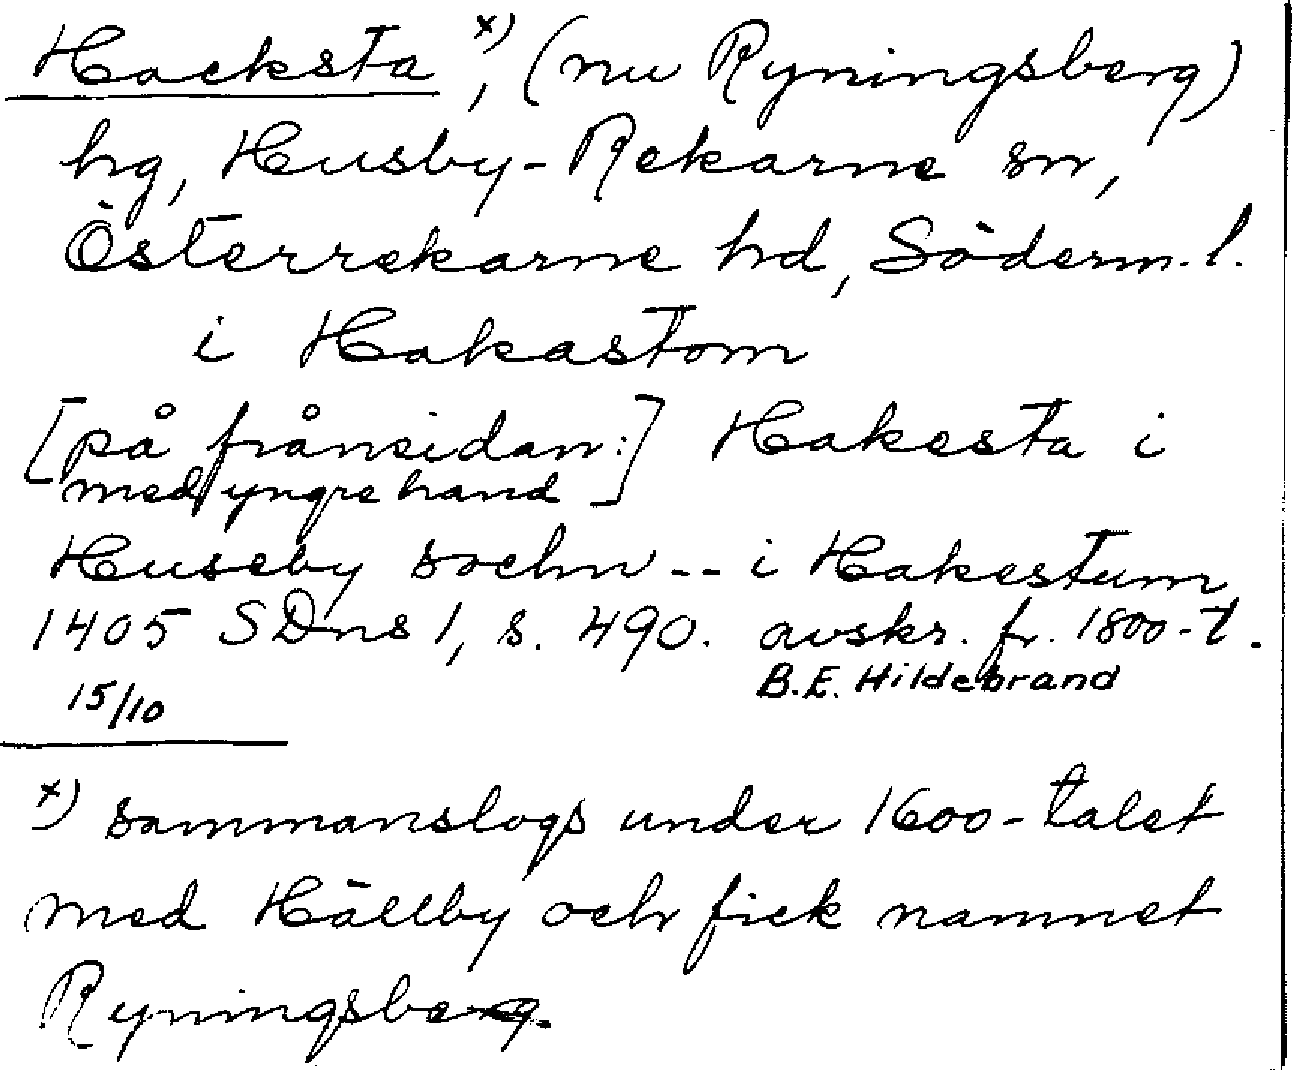 Hacksta x), (nu Ryningsberg)
hg, Husby-Rekarne sn,
Österrekarne hd, Söderm. l.
i Hakastom
[på frånsidan:] Hakesta i
med yngre hand]
Huseby sochn -- i Hakestum
1405 SDns 1, s. 490. avskr. fr. 1800-t.
B.E. Hildebrand
15/10
x) sammanslogs under 1600-talet
med Hällby och fick namnet
Ryningsberg.